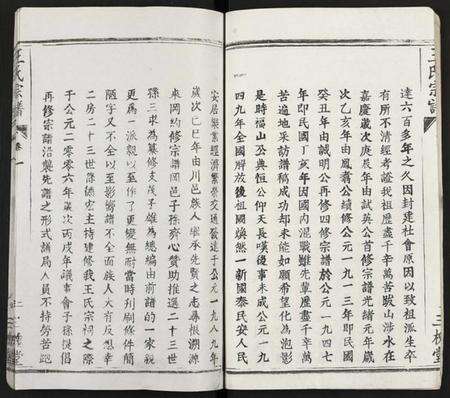 王氏宗譜
三槐堂
達六百多年之久因封建社會原因以致祖派生卒
有所不清經考證我祖歷盡千辛萬苦跋山涉水在
嘉慶歲次庚辰年由試英公首修宗譜光緒元年歲
次乙亥年由鳳翥公續修公元一九一三年即民國
癸丑年由誠明公再修四修宗譜於公元一九四七
年即民國丁亥年因國內混戰雖先輩歷盡千辛萬
苦遍地采訪譜稿成功却未能如願希望化為泡影
是時福山公典恒公仰天長嘆優事未成公元一九
四九年全國解放後祖國煥然一新國泰民安人民
安居樂業經濟繁榮交通發達于公元一九八九年
歲次己巳年由川邑族人繼承先賢之志尋根溯源
來岡約修宗譜岡邑子孫齊心贊助推選二十三世
孫三求為纂修支茂子雄為總編由前譜的一家視
更為一派視以至作了更變無耐當時刊刷條件簡
陋字又不全以至影响譜不全面族人大有反想幸
二房二十三世孫德宏主持建修我王氏宗祠之際
于公元二零零六年歲次丙戌年議事會子孫提倡
再修宗譜沿襲先譜之形式譜局人員不持勞苦跑
王氏宗譜
卷一
三槐堂